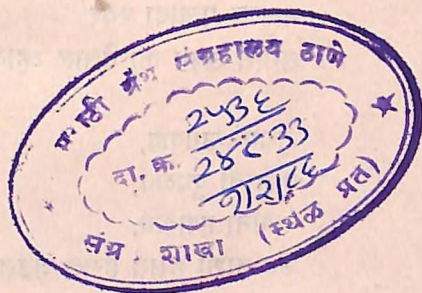 मराठी ग्रंथ संग्रहालय ठाणे
दा. क्र. २५३६
२४८३३
ग्रंथ शाखा (स्थळ प्रत)